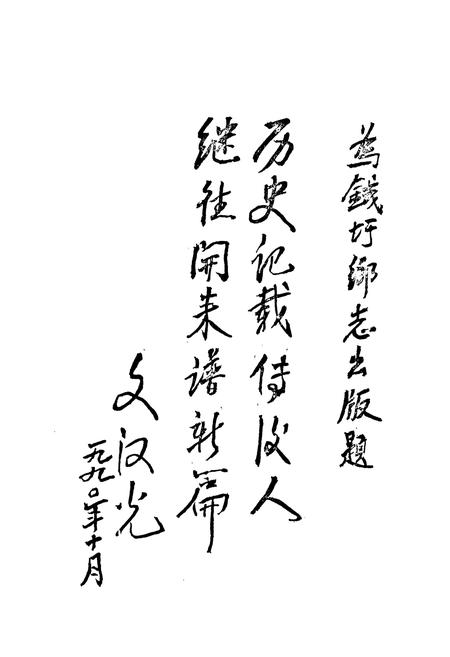 为钱圩乡志出版题
历史记载传后人
继往開来谱新篇
文汉光
一九九〇年十月